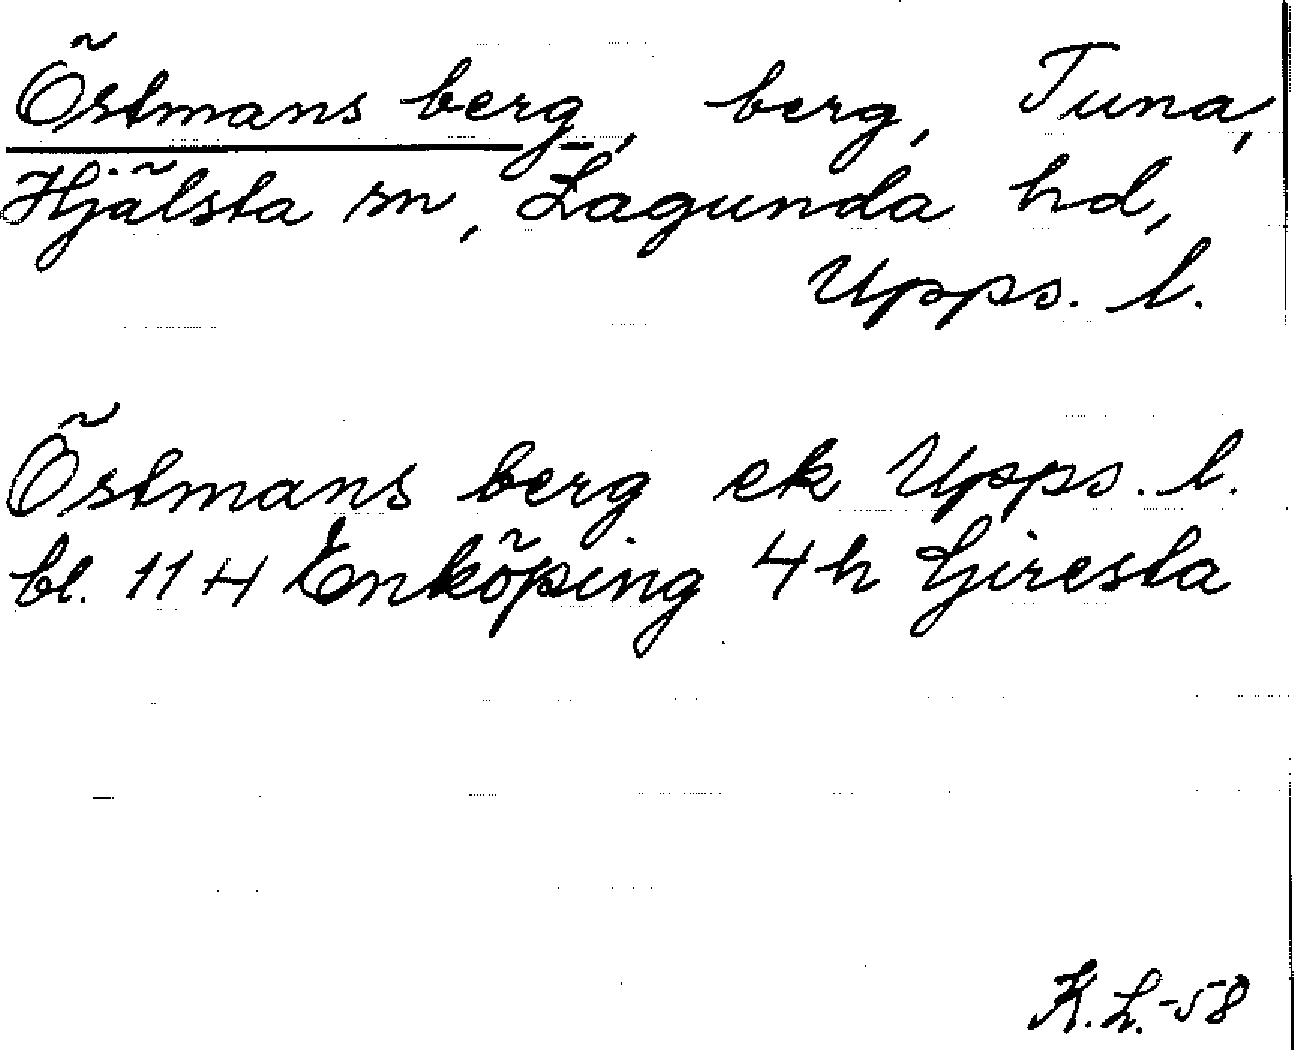 Östmans berg, berg, Tuna,
Hjälsta sn, Lagunda hd,
Upps. l.
Östmans berg ek Upps. l.
bl. 114 Enköping 4h Giresta
K.L.-58